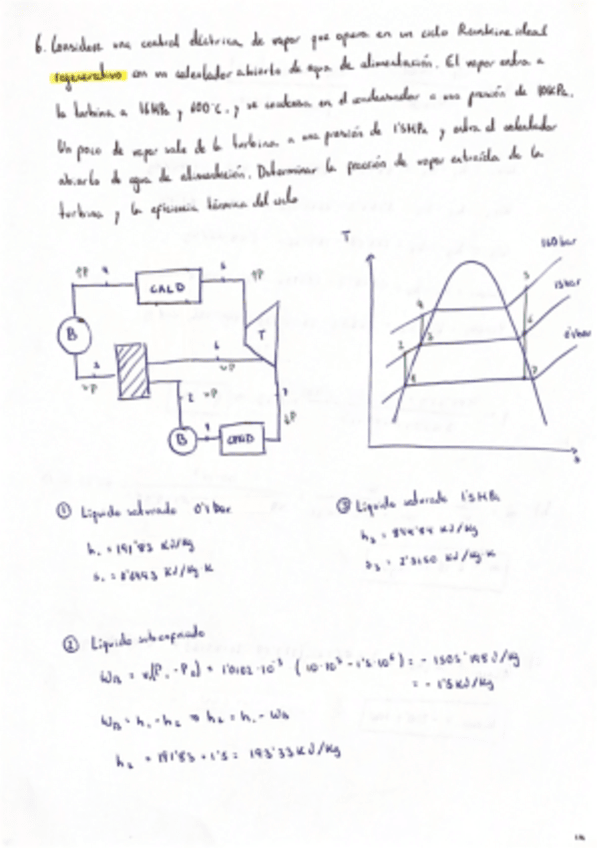 6. Considere una central eléctrica de vapor que opera en un ciclo Rankine ideal
regenerativo con un calentador abierto de agua de alimentación. El vapor entra a
la turbina a 15MPa y 600°C, y se condensa en el condensador a una presión de 10KPa.
Un poco de vapor sale de la turbina a una presión de 1'5MPa y entra al calentador
abierto de agua de alimentación. Determinar la fracción de vapor extraída de la
turbina y la eficiencia térmica del ciclo
T
↑P 4
CALD
5 ↑P
B
T
6
↓P
3
2
B
1
COND
7
↓P
150 bar
15 bar
0'1 bar
5
4
6
2
3
1
7
s
① Líquido saturado 0'1 bar
h₁ = 191'83 KJ/Kg
s₁ = 0'6493 KJ/Kg·K
③ Líquido saturado 1'5MPa
h₃ = 844'84 KJ/Kg
s₃ = 2'3150 KJ/Kg·K
② Líquido subenfriado
W_B = v₁(P₁ - P₂) = 1'0102·10⁻³ (10·10³ - 1'5·10⁶) = - 1505'198 J/Kg
= - 1'5 KJ/Kg
W_B = h₁ - h₂ ⇒ h₂ = h₁ - W_B
h₂ = 191'83 + 1'5 = 193'33 KJ/Kg